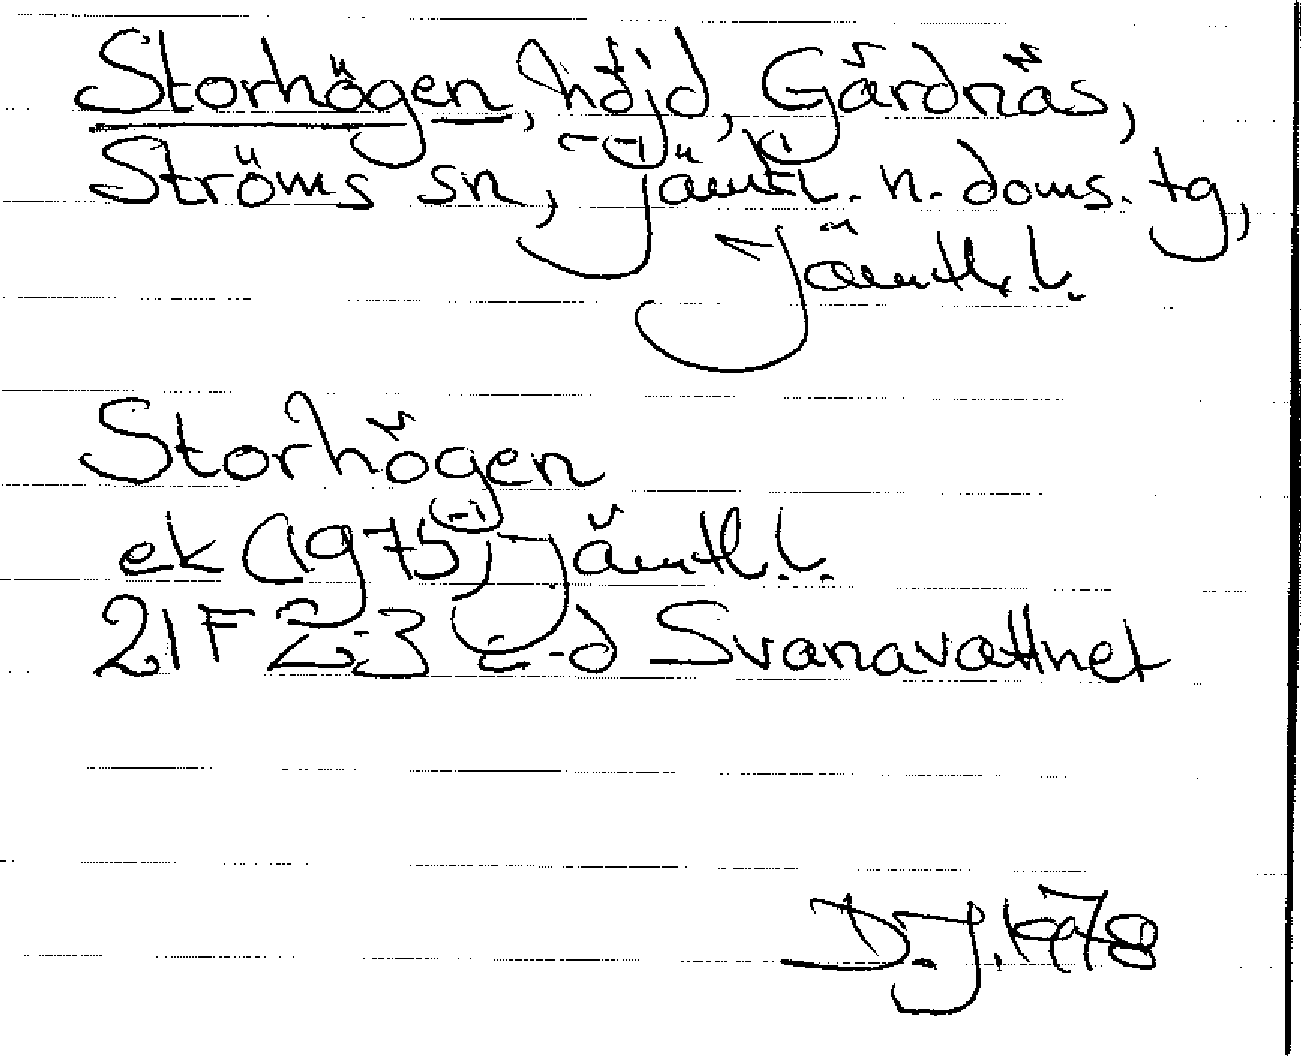 Storhögen, höjd, Gärdnäs,
Ströms sn, Jämtl. n. doms. tg,
Jämtl. l.
Storhögen
ek (1975), Jämtl. l.
21F 2-3 c-d Svanavattnet
D.J. 1978